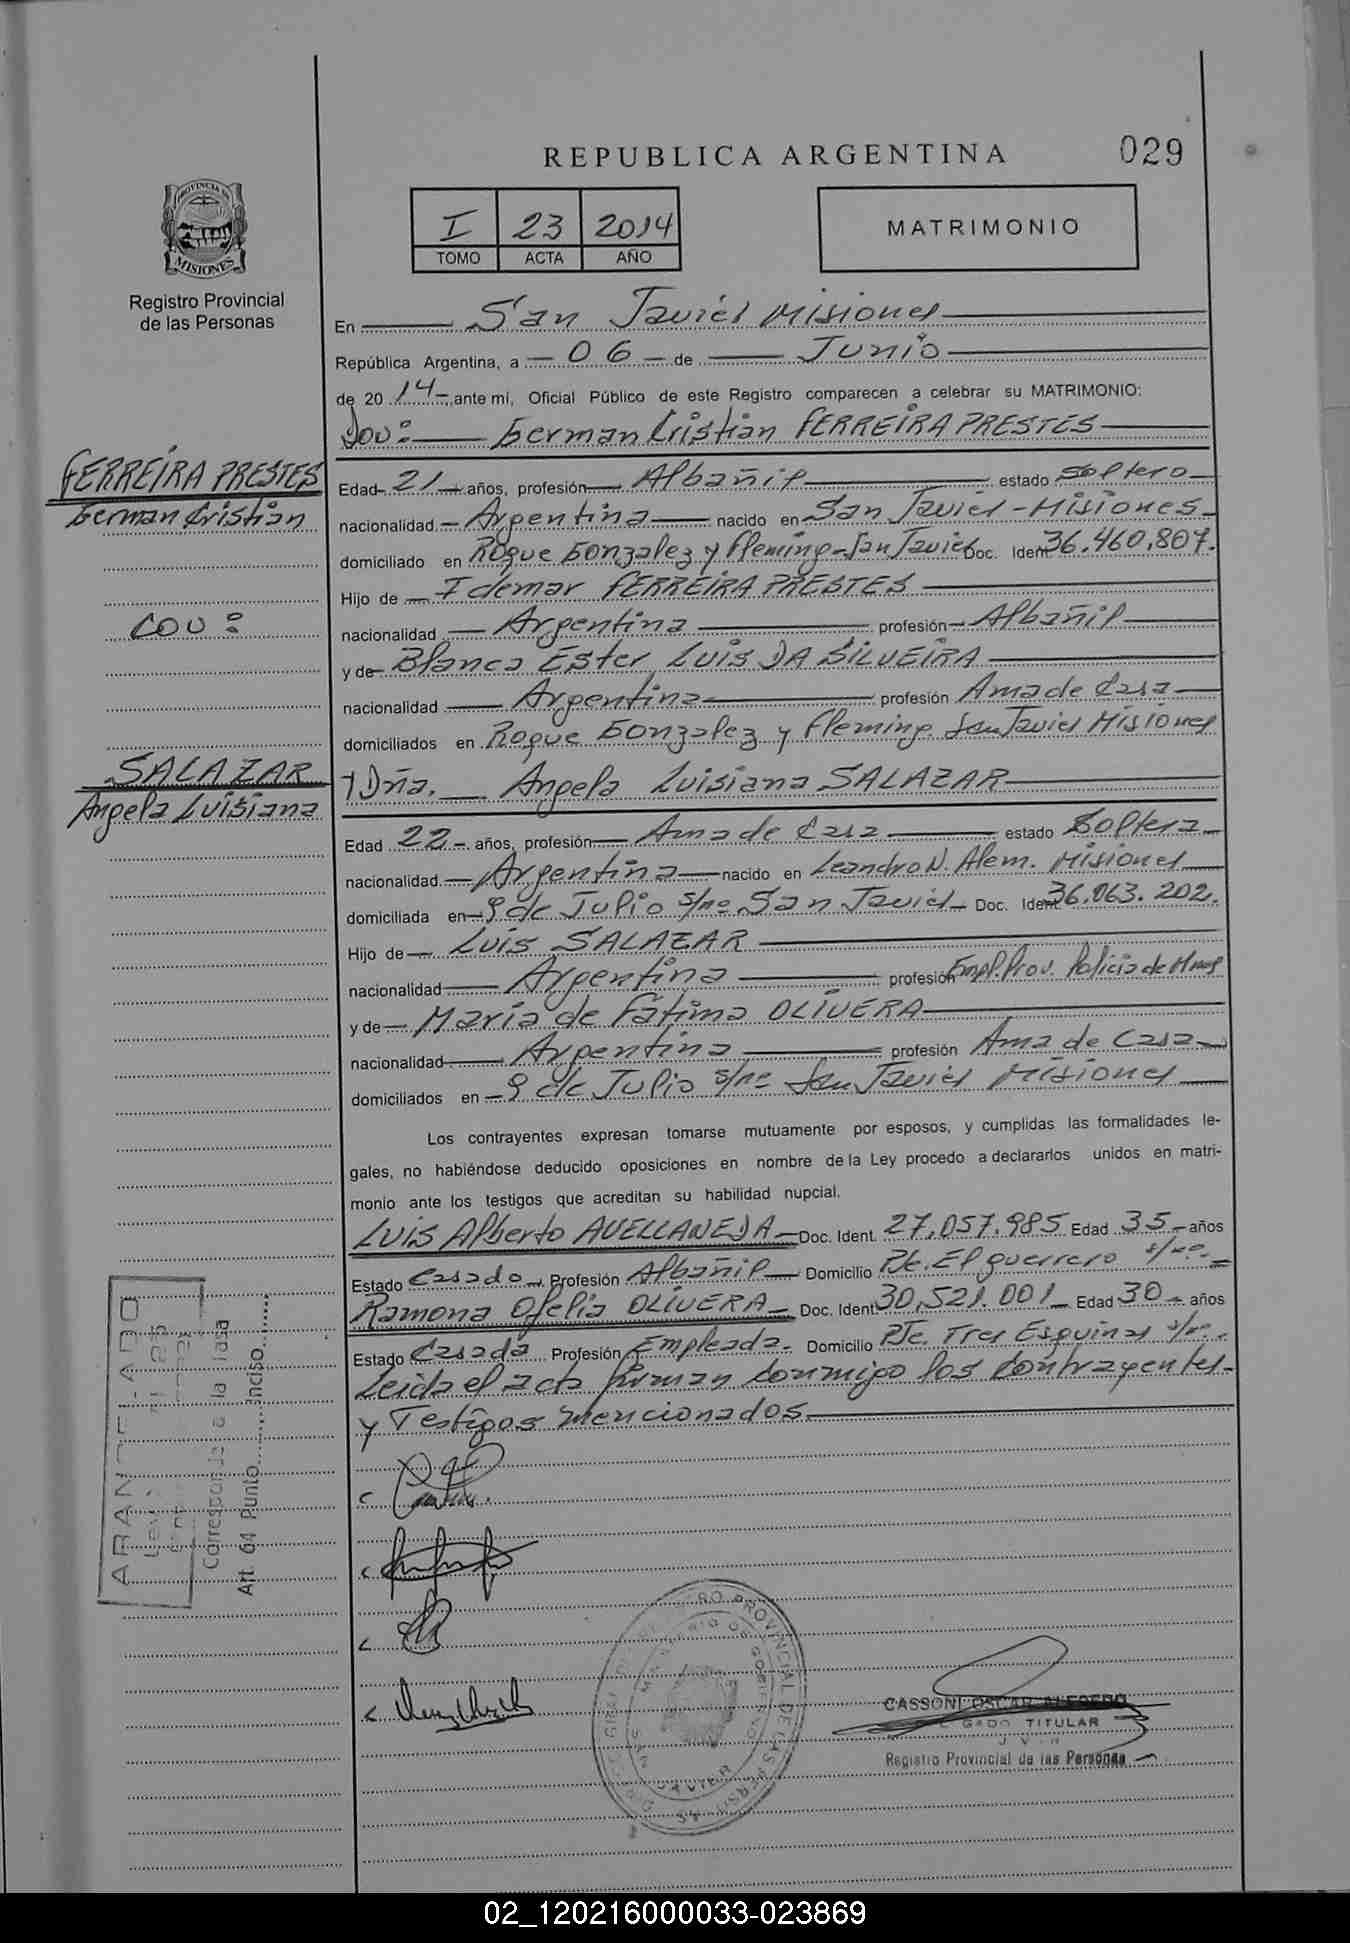 REPUBLICA ARGENTINA
029
PROVINCIA DE
MISIONES
Registro Provincial
de las Personas
I 23 2014
TOMO ACTA AÑO
MATRIMONIO
En San Javier Misiones
República Argentina, a 06 de Junio
de 20 14 ante mí, Oficial Público de este Registro comparecen a celebrar su MATRIMONIO:
Don: German Cristian FERREIRA PRESTES
FERREIRA PRESTES
German Cristian
con:
SALAZAR
Angela Luisiana
Edad 21 años, profesión Albañil estado Soltero
nacionalidad Argentina nacido en San Javier - Misiones
domiciliado en Roque Gonzalez y Fleming - San Javier Doc. Ident 36.460.807.
Hijo de Idemar FERREIRA PRESTES
nacionalidad Argentina profesión Albañil
y de Blanca Ester LUIS DA SILVEIRA
nacionalidad Argentina profesión Ama de Casa
domiciliados en Roque Gonzalez y Fleming. San Javier Misiones
y Dña. Angela Luisiana SALAZAR
Edad 22 años, profesión Ama de Casa estado Soltera
nacionalidad Argentina nacido en Leandro N. Alem. Misiones
domiciliada en 9 de Julio s/nº San Javier Doc. Ident 36.063.202.
Hijo de Luis SALAZAR
nacionalidad Argentina profesión Empl. Prov. Policia de Mnes
y de Maria de Fatima OLIVERA
nacionalidad Argentina profesión Ama de Casa
domiciliados en 9 de Julio s/nº San Javier Misiones
Los contrayentes expresan tomarse mutuamente por esposos, y cumplidas las formalidades le-
gales, no habiéndose deducido oposiciones en nombre de la Ley procedo a declararlos unidos en matri-
monio ante los testigos que acreditan su habilidad nupcial.
Luis Alberto AVELLANEDA Doc. Ident. 27.057.985 Edad 35 años
Estado Casado Profesión Albañil Domicilio Pje. El guerrero s/nº
Ramona Ofelia OLIVERA Doc. Ident 30.521.001 Edad 30 años
Estado Casada Profesión Empleada. Domicilio Pje. Tres Esquinas s/nº.
Leida el acta firman conmigo los contrayentes
y Testigos mencionados
ARANCELADO
Corresponde a la Tasa
Art. 64 Punto inciso
REGISTRO PROVINCIAL DE LAS PERSONAS
MINISTERIO DE GOBIERNO
CASSONI OSCAR ALFREDO
TITULAR
Registro Provincial de las Personas
02_120216000033-023869